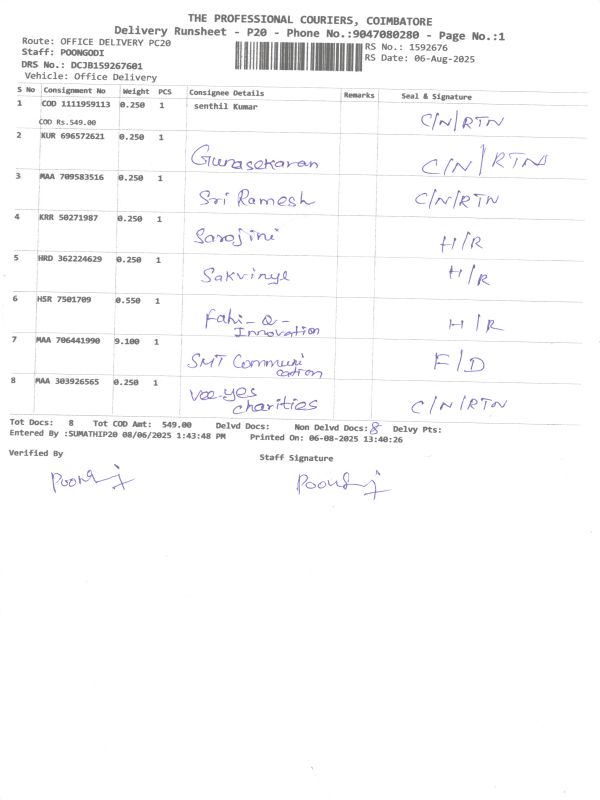 THE PROFESSIONAL COURIERS, COIMBATORE
Delivery Runsheet - P20 - Phone No.:9047080280 - Page No.:1
Route: OFFICE DELIVERY PC20
Staff: POONGODI
DRS No.: DCJB159267601
Vehicle: Office Delivery
RS No.: 1592676
RS Date: 06-Aug-2025
S No Consignment No Weight PCS Consignee Details Remarks Seal & Signature
1 COD 1111959113 0.250 1 senthil Kumar C/N/RTN
COD Rs.549.00
2 KUR 696572621 0.250 1 Gunasekaran C/N/RTN
3 MAA 709583516 0.250 1 Sri Ramesh C/N/RTN
4 KRR 50271987 0.250 1 Sarojini H/R
5 HRD 362224629 0.250 1 Sakvinye H/R
6 HSR 7501709 0.550 1 Fahi-Q-Innovation H/R
7 MAA 706441990 9.100 1 SMT Communication F/D
8 MAA 303926565 0.250 1 vee-yes charities C/N/RTN
Tot Docs: 8 Tot COD Amt: 549.00 Delvd Docs: Non Delvd Docs: 8 Delvy Pts:
Entered By :SUMATHIP20 08/06/2025 1:43:48 PM Printed On: 06-08-2025 13:40:26
Verified By Staff Signature